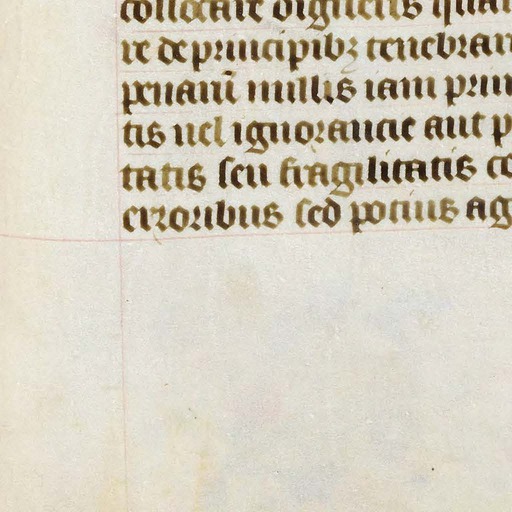 collocare digneris qua
re de principibꝫ tenebrar
penaꝝ nullis iam prin
tis uel ignorancie aut p
tatis seu fragilitatis co
erroribus sed pocius ag